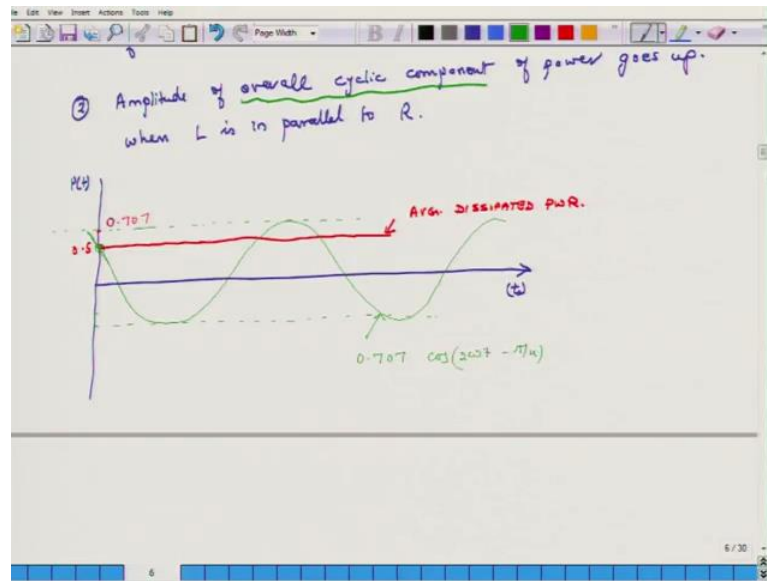 File Edit View Insert Actions Tools Help
Page Width
B I
③ Amplitude of overall cyclic component of power goes up.
when L is in parallel to R.
P(t)
0.707
AVG. DISSIPATED PWR.
0.5
(t)
0.707 cos(2ωt - π/4)
6/30
6